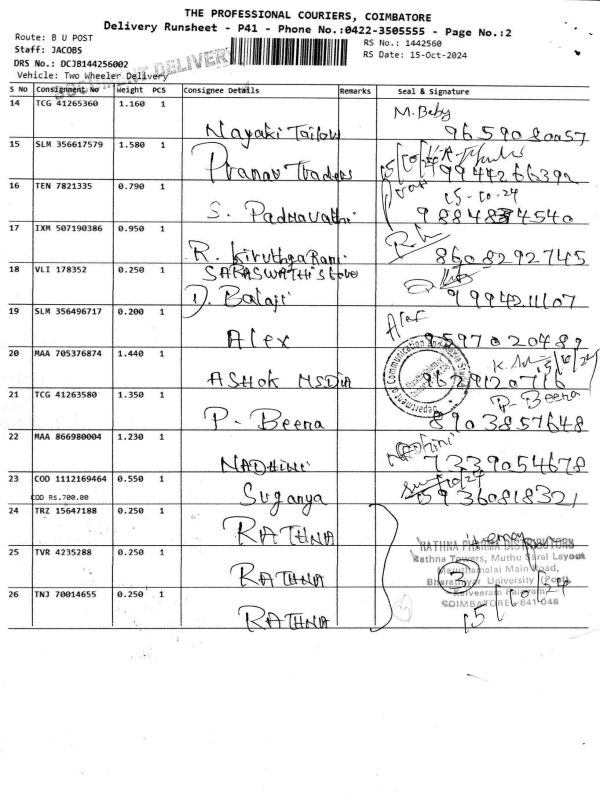 THE PROFESSIONAL COURIERS, COIMBATORE
Delivery Runsheet - P41 - Phone No.:0422-3505555 - Page No.:2
Route: B U POST
RS No.: 1442560
Staff: JACOBS
RS Date: 15-Oct-2024
DRS No.: DCJB144256002
DOCUMENT DELIVERY
Vehicle: Two Wheeler Delivery
S No Consignment No Weight PCS Consignee Details Remarks Seal & Signature
14 TCG 41265360 1.160 1
M. Baby
Nayaki Tailow 9659080057
15 SLM 356617579 1.580 1
Pranav Traders 9944266392
16 TEN 7821335 0.790 1
15-10-24
S. Padmavathi 9884834540
17 IXM 507190386 0.950 1
R. Kiruthga Rani 8608292745
18 VLI 178352 0.250 1 SARASWATHI Store
D. Balaji 9994211107
19 SLM 356496717 0.200 1
Alex
Alex 9597020489
20 MAA 705376874 1.440 1
15/10/24
ASHOK MSDIA 9629120716
21 TCG 41263580 1.350 1
P- Beena
P- Beena 8903857648
22 MAA 866980004 1.230 1
Nadhini
NADHINI 7339054678
23 COD 1112169464 0.550 1
COD Rs.700.00
Suganya 69360818321
24 TRZ 15647188 0.250 1
RATHNA
RATHNA PHARMA DISTRIBUTORS
25 TVR 4235288 0.250 1
Rathna Towers, Muthu Saral Layout
Maruthamalai Main Road,
RATHNA
3
Bharathiyar University (Post)
26 TNJ 70014655 0.250 1
Kalveeram Palayam,
COIMBATORE - 641 046
RATHNA
15/10/24